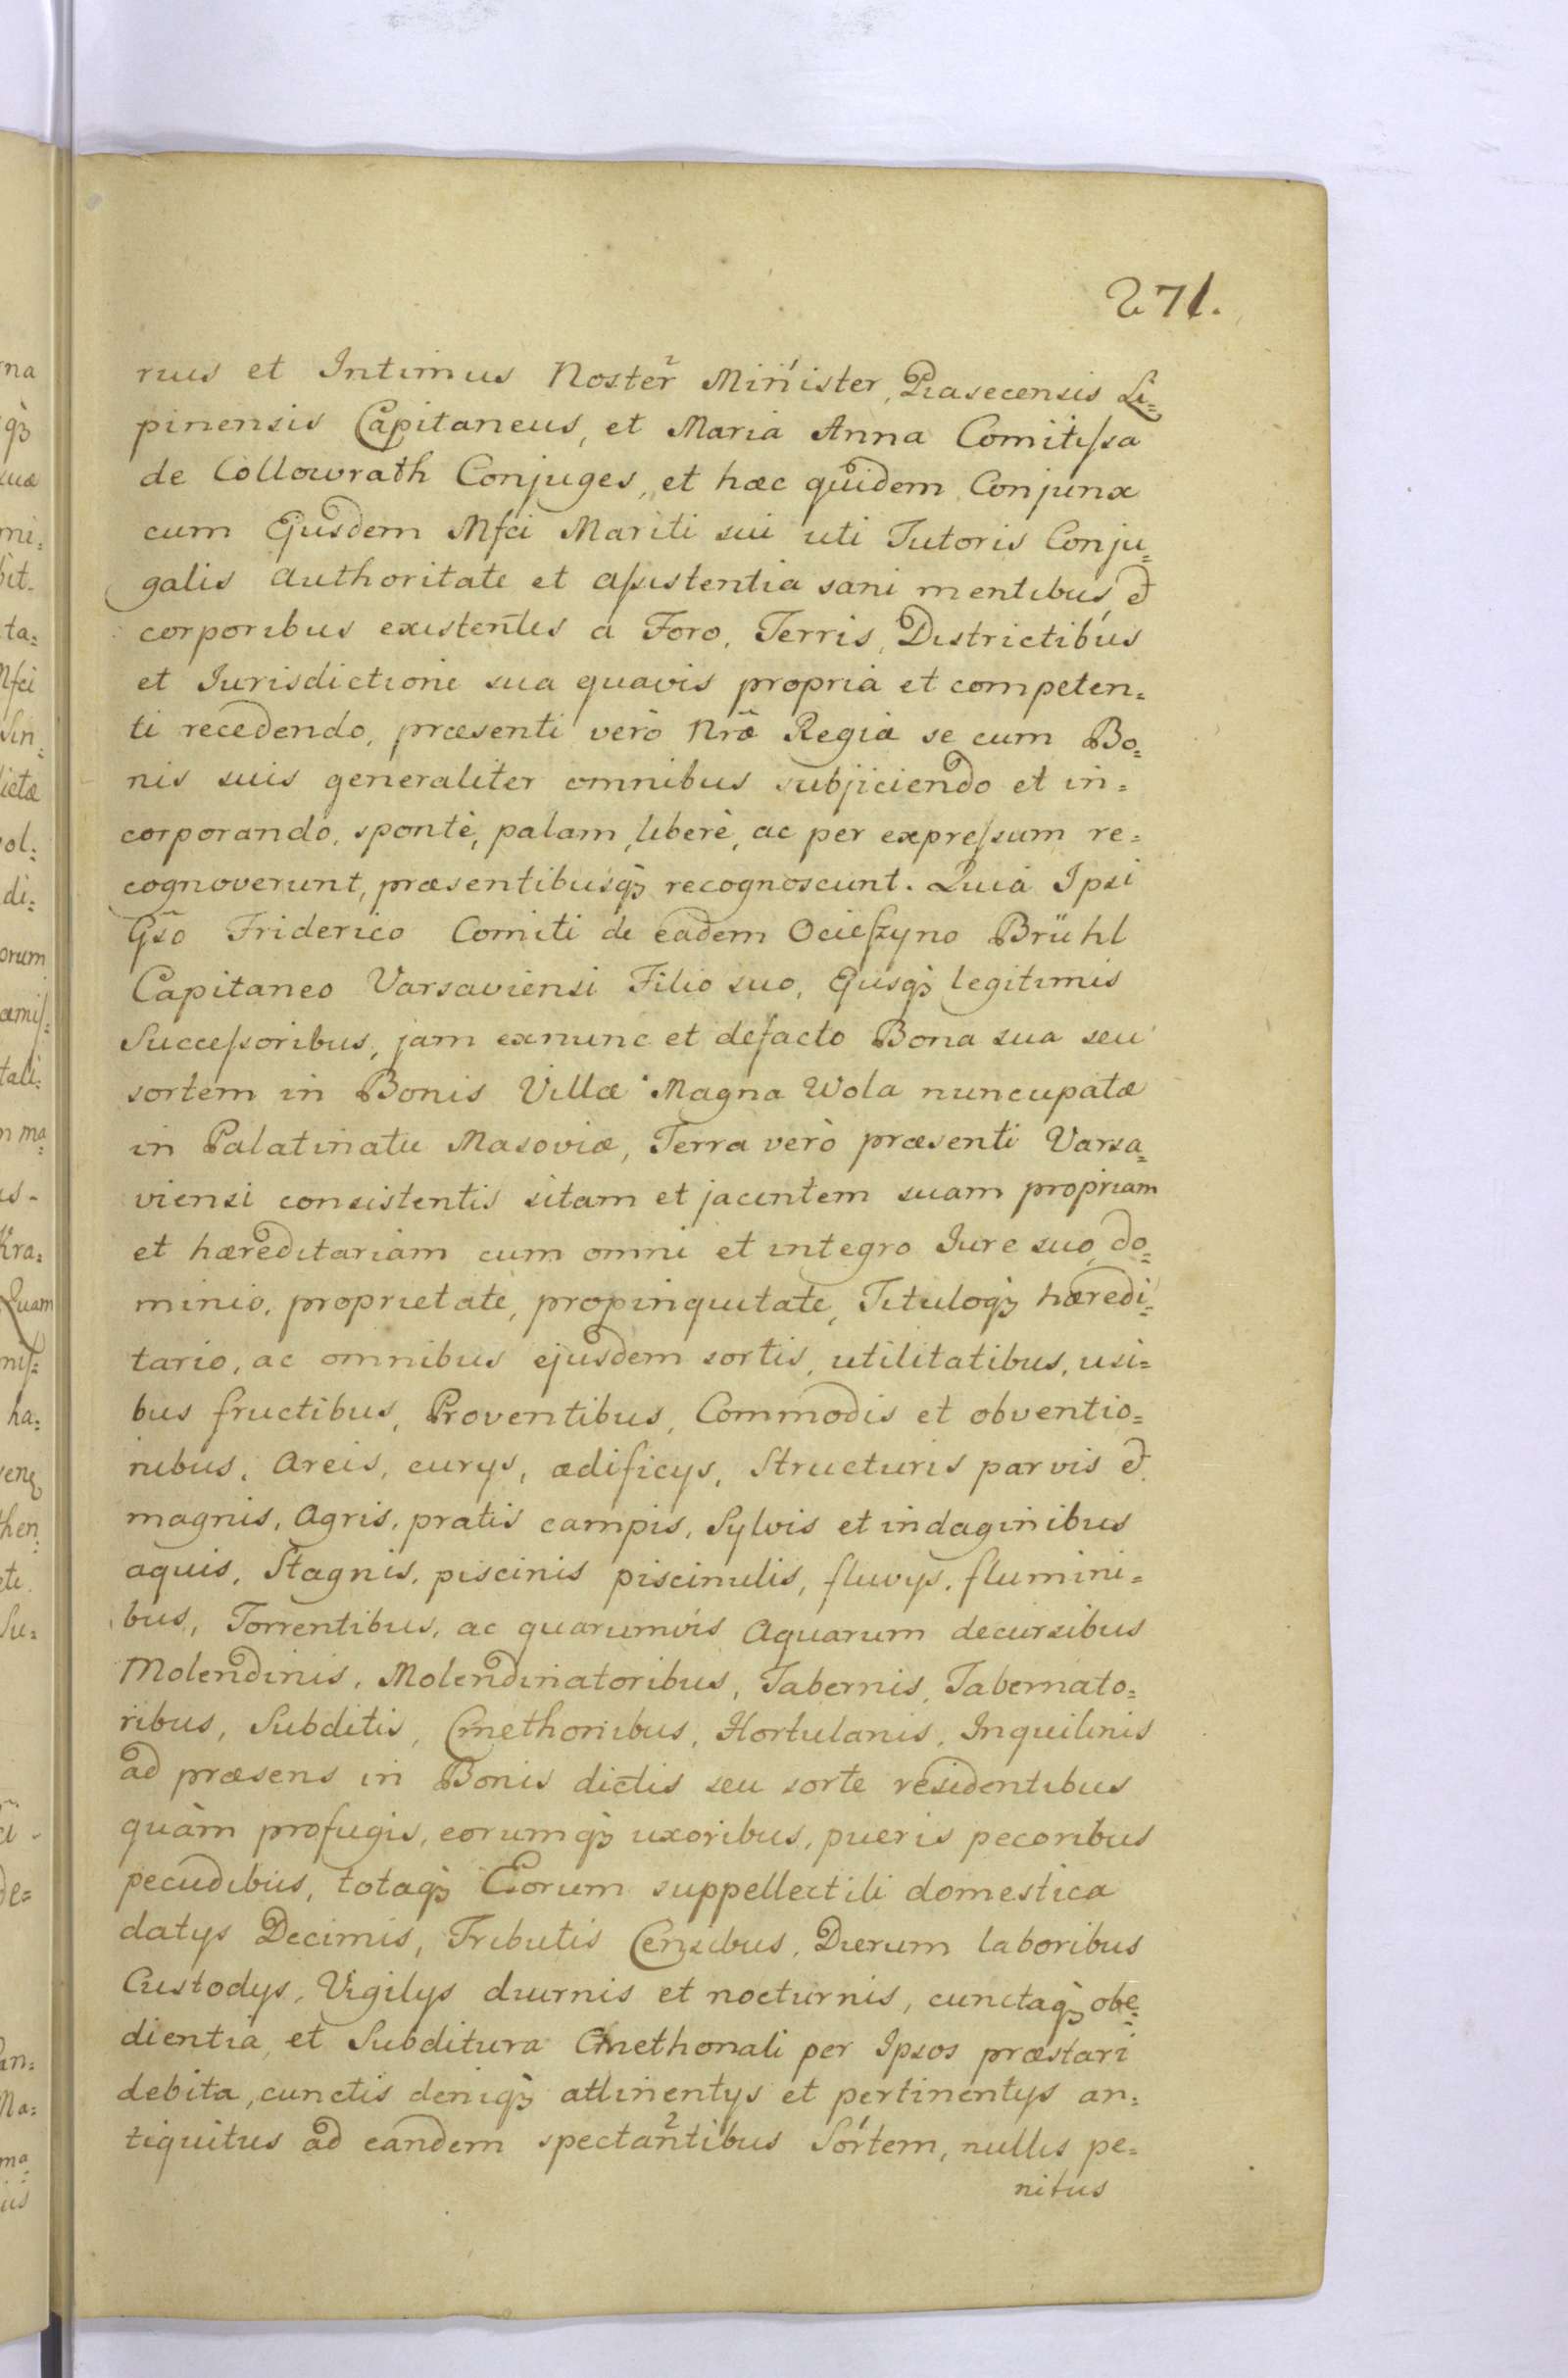 271.
rius et Intimus Noster Minister, Piasecensis Li=
pinensis Capitaneus, et Maria Anna Comitiſsa
de Collowrath Conjuges, et hæc quidem Conjunx
cum Ejusdem Mfci Mariti sui uti Tutoris Conju=
galis authoritate et aſsistentia sani mentibus, et
corporibus existentes a Foro, Terris, Districtibus
et Jurisdictione sua quavis propria et competen=
ti recedendo, præsenti verò Nrã Regia se cum Bo=
nis suis generaliter omnibus subjiciendo et in=
corporando, spontè, palam, liberè, ac per expreſsum re=
cognoverunt, præsentibusq́ȝ recognoscunt. Quia Ipsi
Gso Friderico Comiti de eadem Ocieſzyno Brühl
Capitaneo Varsaviensi Filio suo, Ejusq́ȝ legitimis
Succeſsoribus, jam exnunc et defacto Bona sua seu
sortem in Bonis Villæ Magna Wola nuncupatæ
in Palatinatu Masoviæ, Terra verò præsenti Varsa=
viensi consistentis sitam et jacentem suam propriam
et hæreditariam cum omni et integro Jure suo, do=
minio, proprietate, propinquitate, Tituloq́ȝ hæredi=
tario, ac omnibus ejusdem sortis, utilitatibus, usi=
bus fructibus, Proventibus, Commodis et obventio=
nibus, areis, curys, ædificys, Structuris parvis et
magnis, Agris, pratis campis, Sylvis et indaginibus
aquis, Stagnis, piscinis piscinulis, fluvys, flumini=
bus, Torrentibus, ac quarumvis Aquarum decursibus
Molendinis, Molendinatoribus, Tabernis, Tabernato=
ribus, Subditis, Cmethonibus, Hortulanis, Inquilinis
ad præsens in Bonis dictis seu sorte residentibus
quàm profugis, eorumq́ȝ uxoribus, pueris pecoribus
pecudibus, totaq́ȝ Eorum suppellectili domestica
datys Decimis, Tributis Censibus, Dierum laboribus
Custodys, Vigilys diurnis et nocturnis, cunctaq́ȝ obe=
dientia, et Subditura Cmethonali per Ipsos præstari
debita, cunctis deniq́ȝ attinentys et pertinentys an=
tiquitus ad eandem spectantibus Sortem, nullis pe=
nitus